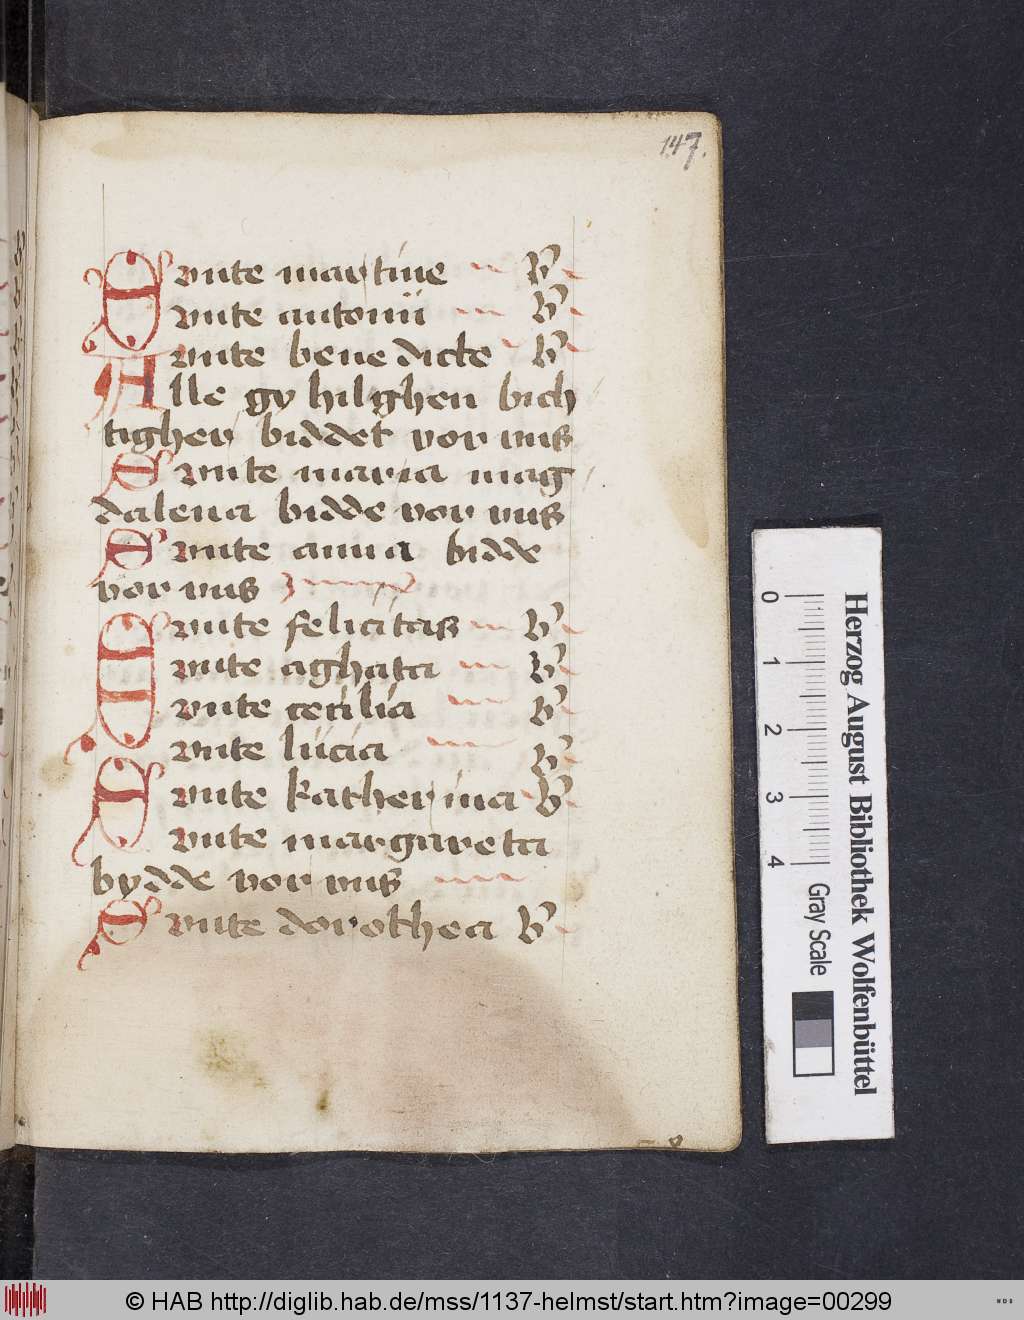 147.
Sunte martine B
sunte antonii B
sunte bene dicte B
Alle gy hilghen bich
tigher biddet vor uns
Sunte maria mag
dalena bidde vor uns
Sunte anna bidde
vor uns
Sunte felicitas B
sunte aghata B
sunte cecilia B
sunte lucia B
Sunte katherina B
sunte margareta
bydde vor uns
Sunte dorothea B
0 1 2 3 4
Gray Scale
Herzog August Bibliothek Wolfenbüttel
© HAB http://diglib.hab.de/mss/1137-helmst/start.htm?image=00299